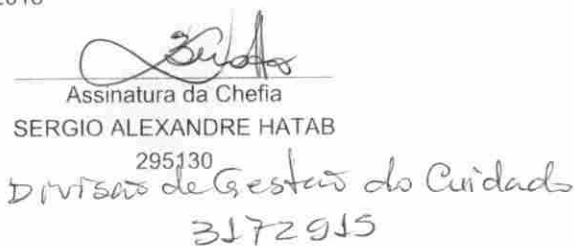 Assinatura da Chefia
SERGIO ALEXANDRE HATAB
295130
Divisão de Gestão do Cuidado
3172915